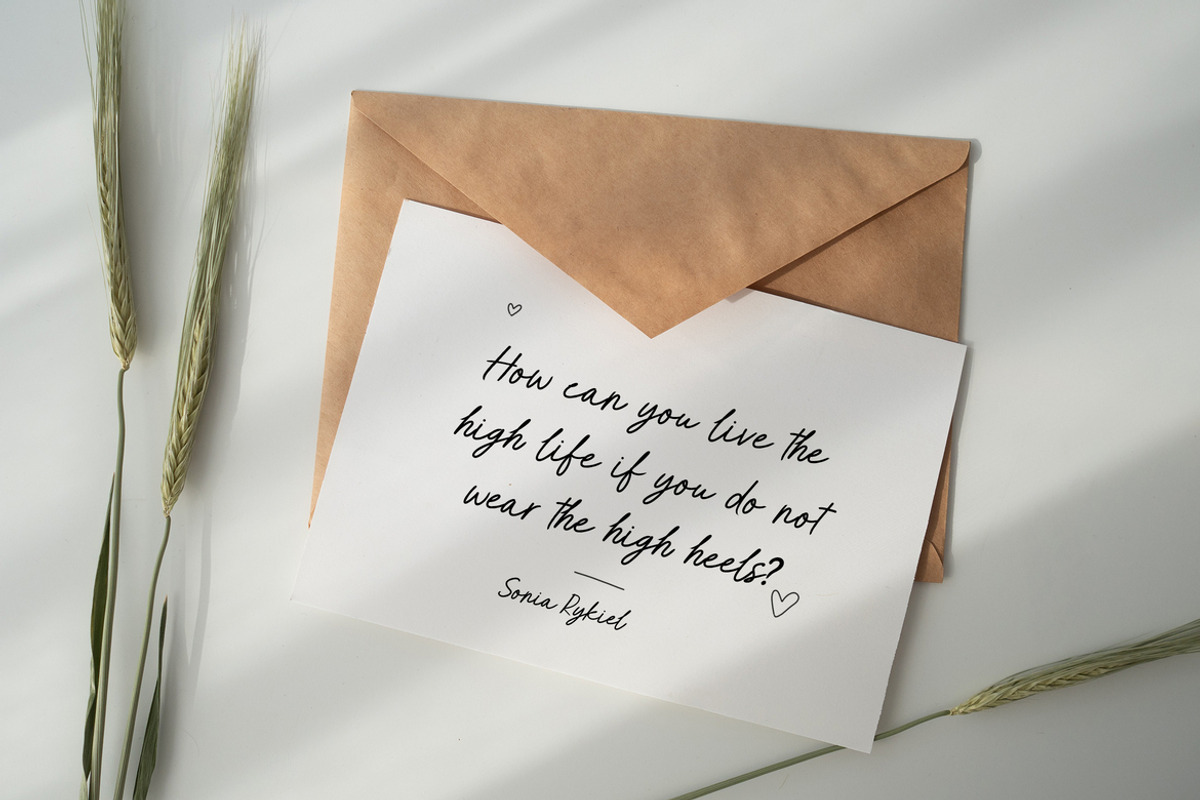 How can you live the
high life if you do not
wear the high heels?
Sonia Rykiel